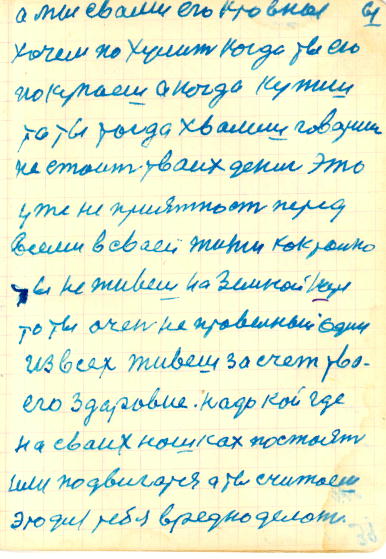 а мы свами его кровныя
хочем похулит когда ты его
покупаеш а когда купиш
та ты тогда хвалиш говориш
не стоит тваих дениг Это
уже не приятност перед
всеми в сваей жизни
ты не живеш на Земной
то ты очен не правелный один
из всех живеш за счет тво-
его здаровие. надо кой где
на сваих ношках постоят
или подвигатя а ты считаеш
это дил тебя вредно делат.